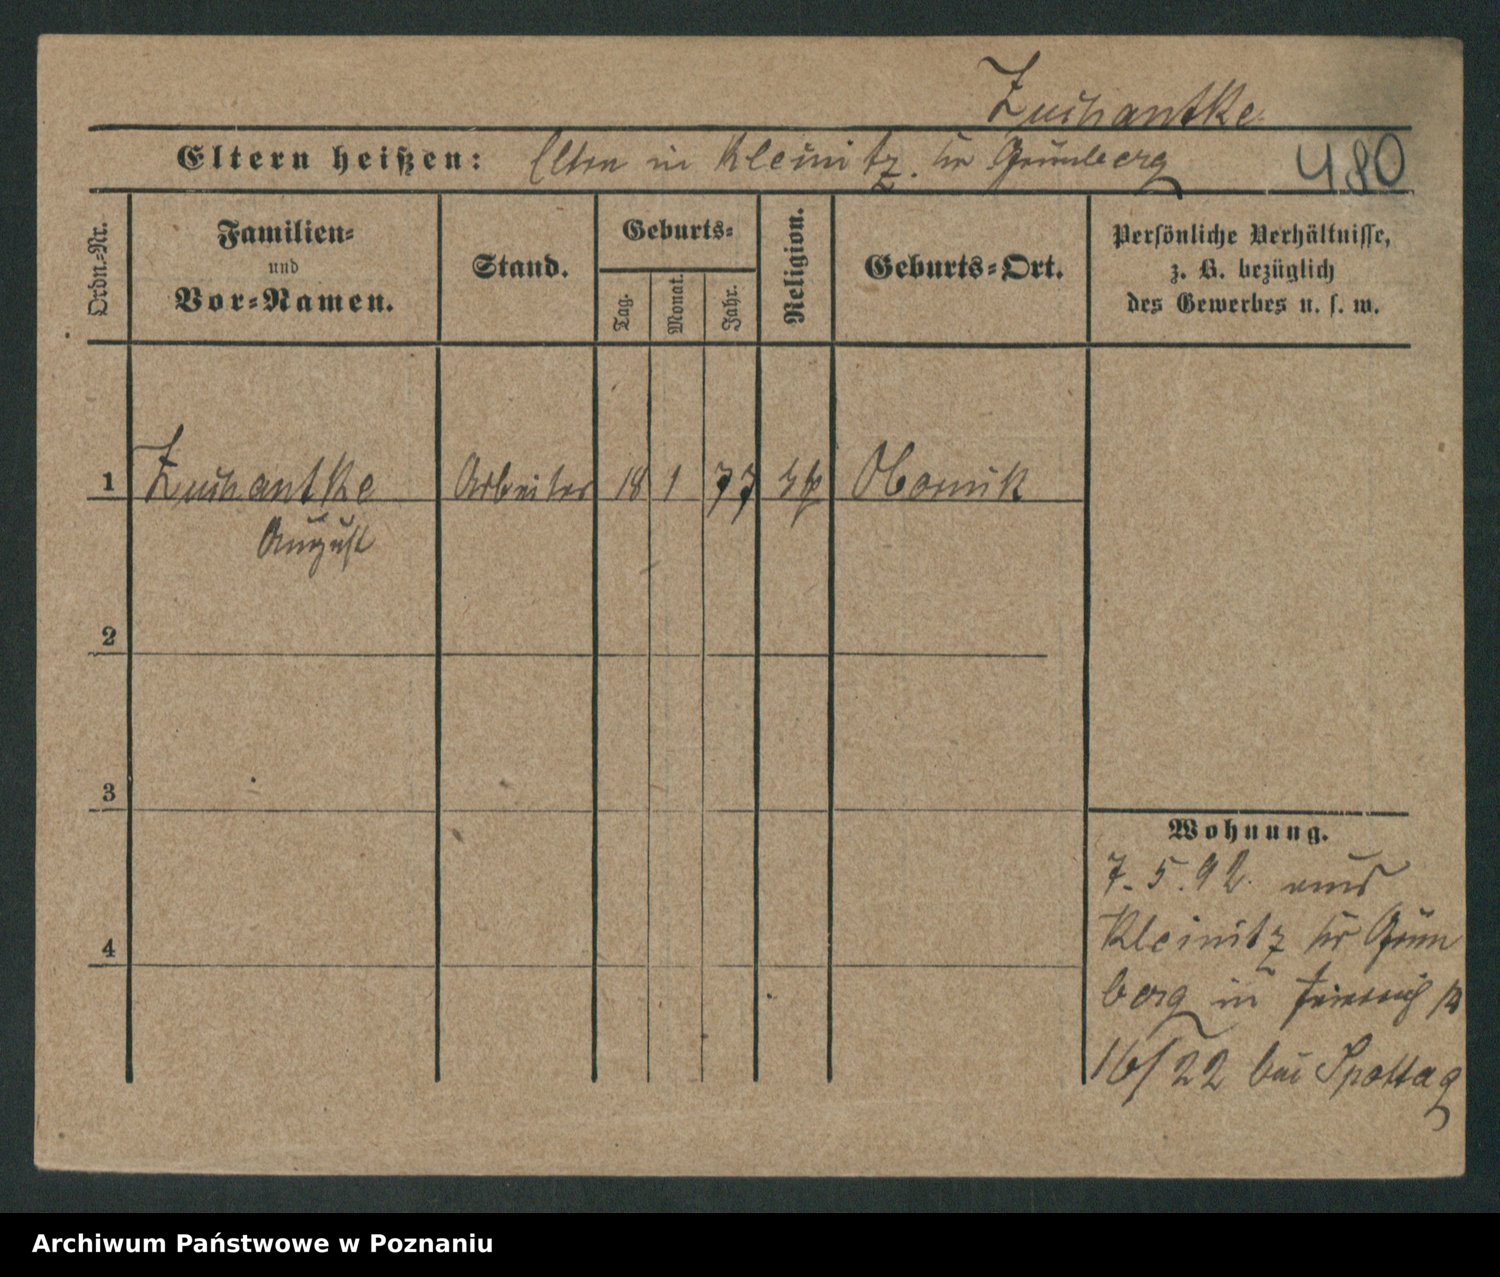 Zuchantke
Eltern heißen: Eltern in Kleinitz. Kr Grünberg 480
Ordn.-Nr.
Familien-
und
Vor-Namen.
Stand.
Geburts-
Tag.
Monat.
Jahr.
Religion.
Geburts-Ort.
Persönliche Verhältnisse,
z. B. bezüglich
des Gewerbes u. s. w.
1 Zuchantke Arbeiter 18 1 77 Obornik
August
2
3
4
Wohnung.
7.5.92. aus
Kleinitz Kr Grün
berg in
16/22 bei Spottag